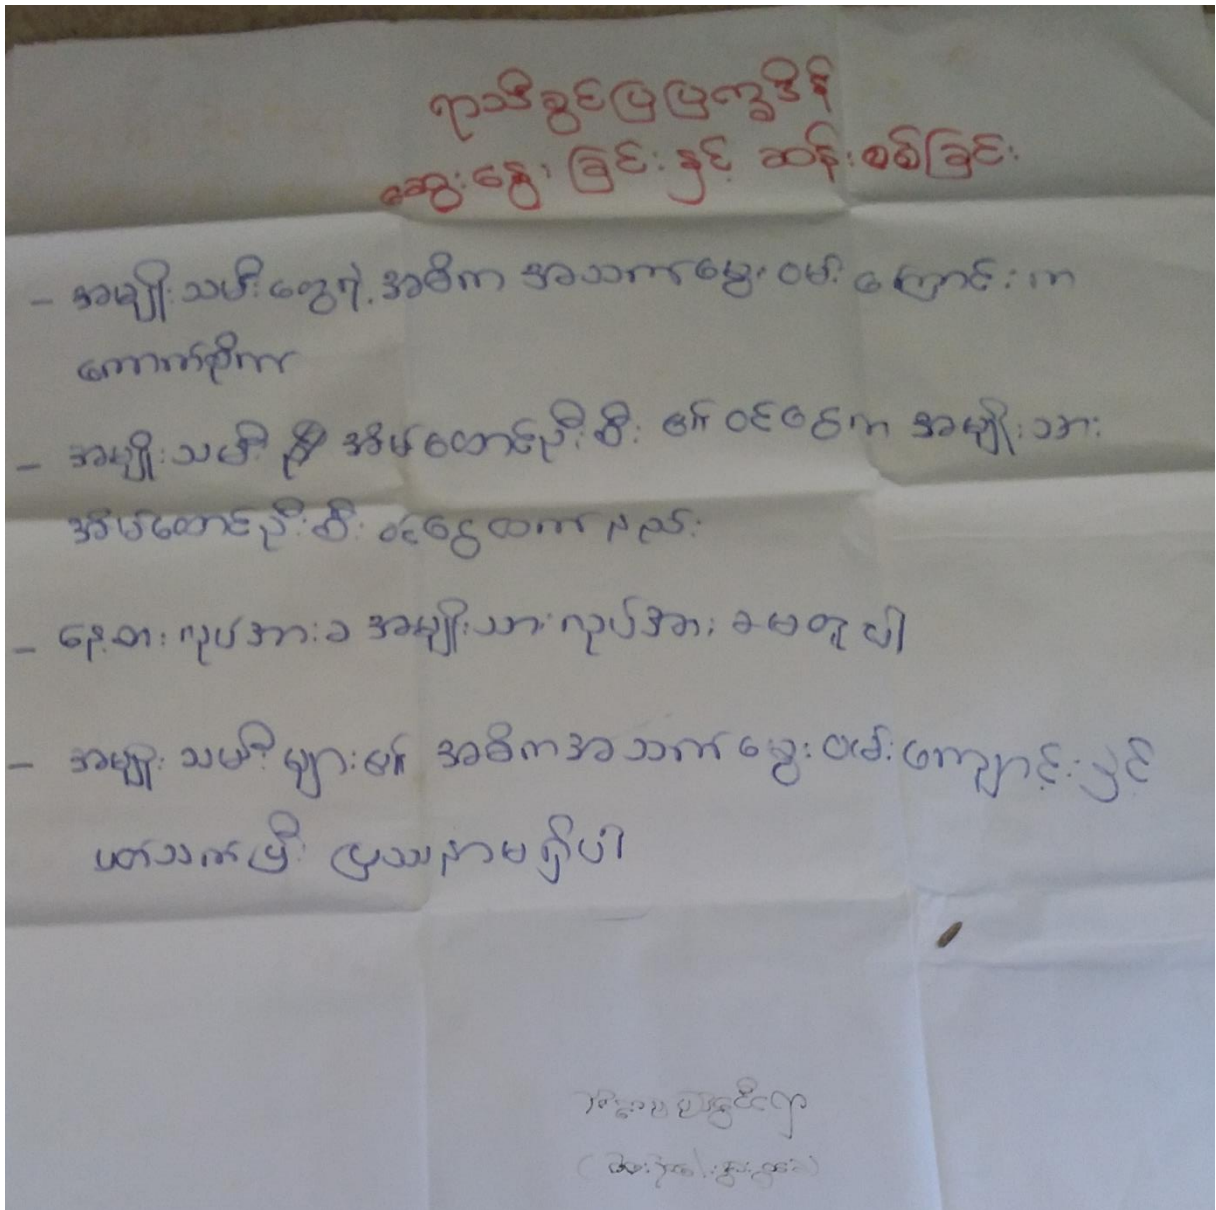 ရာသီခွင်ပြပြက္ခဒိန်
ဆွေးနွေးခြင်းနှင့် ဆန်းစစ်ခြင်း
- အမျိုးသမီးတွေရဲ့ အဓိက အသက်မွေးဝမ်းကြောင်းက
ကောက်စိုက်
- အမျိုးသမီး အိမ်ထောင်ဦးစီး ၏ ဝင်ငွေက အမျိုးသား
အိမ်ထောင်ဦးစီး ဝင်ငွေထက်နည်း
- နေ့စား လုပ်အားခ အမျိုးသား လုပ်အားခ မတူပါ
- အမျိုးသမီးများ၏ အဓိကအသက်မွေးဝမ်းကျောင်းနှင့်
ပတ်သက်ပြီး ပြဿနာမရှိပါ